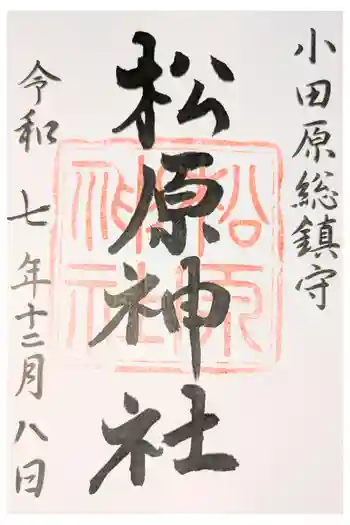 小田原総鎮守
松原神社
松原神社
令和七年十二月八日